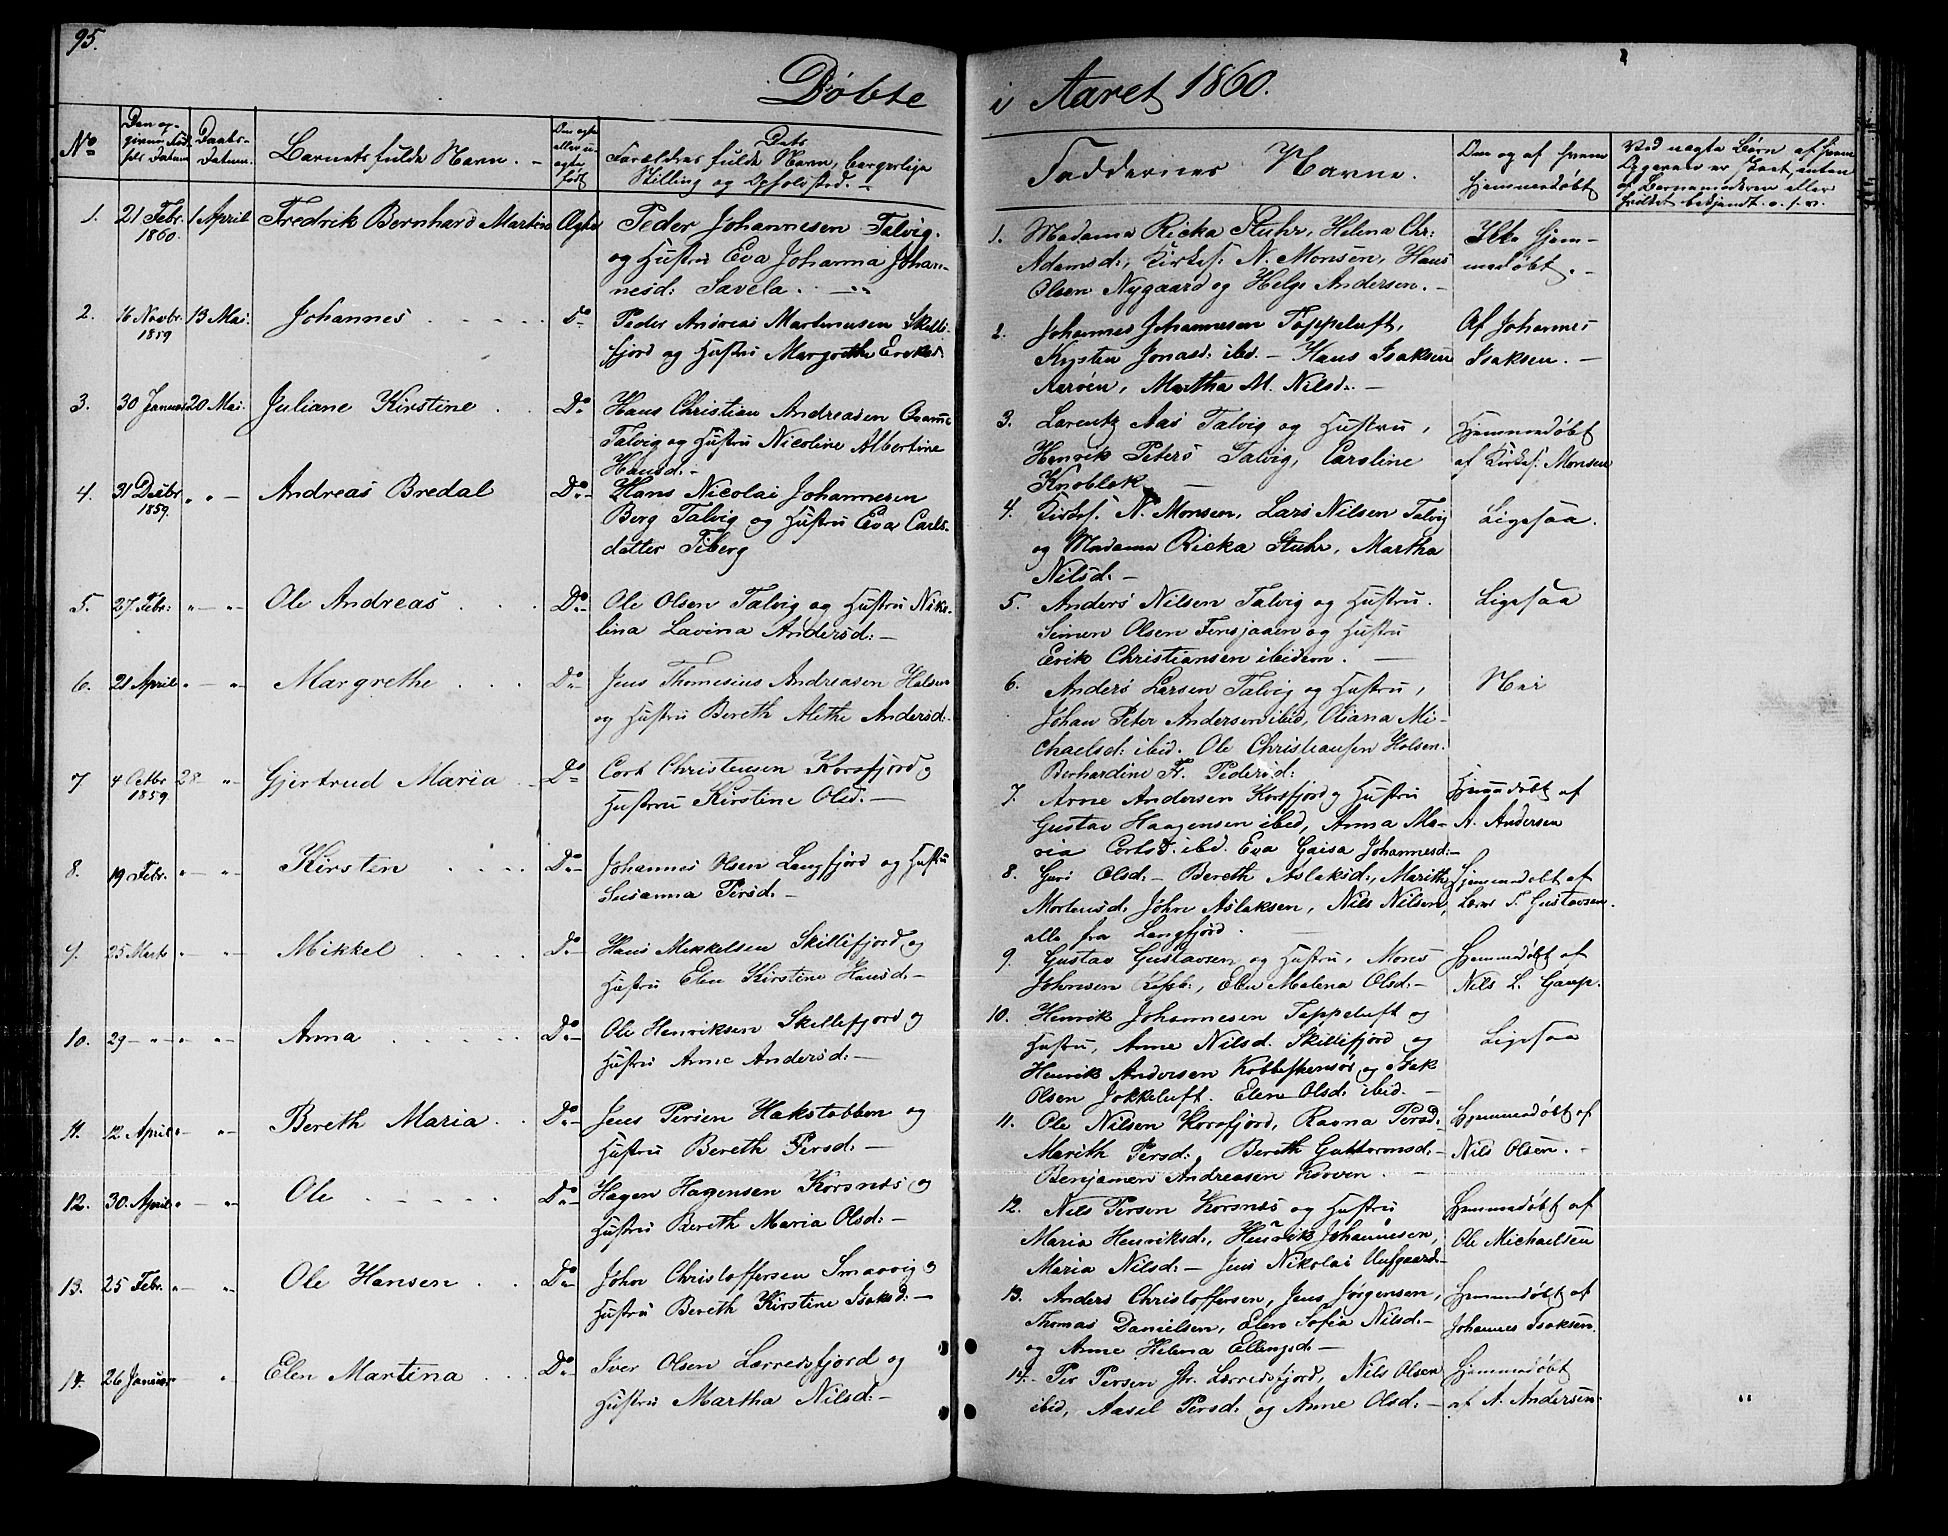 95.
Döbte i Aaret 1860.
No
Den opgivne Fødsels Datum
Daabs-Datum.
Barnets fulde Navn. -
Om ægte eller uægte født
Dets Forældres fulde Navn, borgerlige Stilling og Opholdsted. -
Faddernes Navne.
Om og af hvem hjemmedøbt
Ved uægte Børn af hvem Opgaven er
1.
21 Febr.
1860.
1 April
Fredrik Bernhard Martin
Ægte
Peder Johannesen Talvig.
og Hustru Eva Johanna Johan-
nesd: Savela. -
2.
16 Novbr.
1859
13 Mai.
Johannes
Do
Peder Andreas Martenussen Skille-
fjord og Hustru Margrethe
3.
30 Januar
20 Mai.
Juliane Kirstine
Do
Hans Christian Andreasen
Talvig og Hustru Nicoline Albertine
Hansd: -
4.
31 Decbr
1859.
" " -
Andreas Bredal
Do
Hans Nicolai Johannesen
Berg Talvig og Hustru Eva Carls-
datter Fiberg
5.
27 Febr:
" - " -
Ole Andreas
Do
Ole Olsen Talvig og Hustru Niko-
lina Lavina Andersd: -
6.
21 April
" - " -
Margrethe
Do
Jens Thomesius Andreasen Halsen
og Hustru Bereth Alethe Andersd:
7
4 Octbr
1859.
28 - " -
Gjertrud Maria
Do
Cort Christensen Korsfjord og
Hustru Kirstine Olsd. -
8.
19 Febr.
" - " -
Kirsten
Do
Johannes Olsen Langfjord og Hustru
Susanna Persd: -
9.
25 Marts
" - " -
Mikkel
Do
Hans Mikkelsen Skillefjord og
Hustru Elen Kirstine Hansd: -
10.
29 - " -
" - " -
Anna
Do
Ole Henriksen Skillefjord og
Hustru Anne Andersd: -
11.
12 April
" - " -
Bereth Maria
Do
Jens Persen Hakstabben og
Hustru Bereth Persd: -
12.
30 April
" - " -
Ole
Do
Hagen Hagensen Korsnæs og
Hustru Bereth Maria Olsd: -
13.
25 Febr.
" - " -
Ole Hansen
Do
John Christoffersen Smaavig og
Hustru Bereth Kirstine Isaksd: -
14.
26 Januar
" - " -
Elen Martina
Do
Iver Olsen Lærredsfjord og
Hustru Martha Nilsd: -
1. Madame Ricka Stuhr, Helena Chr:
Adamsd:, Kirkes: N. Monsen, Hans
Olsen Nygaard og Helge Andersen. -
Ikke hjem-
medøbt. -
2. Johannes Johannesen Tappeluft,
Kirsten Jonasd: ibid. - Hans Isaksen
Aarøen, Martha M. Nilsd: -
Af Johannes
Isaksen. -
3. Lorentz Aas Talvig og Hustru,
Henrik Peters Talvig, Caroline
Knoblok -
Hjemmedøbt
af Kirkes: Monsen
4. Kirkes: N. Monsen, Lars Nilsen Talvig
og Madame Ricka Stuhr, Martha
Nilsd: -
Ligesaa.
5. Anders Nilsen Talvig og Hustru.
Simen Olsen og Hustru
Erik Christiansen ibidem. -
Ligesaa
6. Anders Larsen Talvig og Hustru,
Johan Peter Andersen ibid, Oliana Mi-
chaelsd: ibid. Ole Christiansen Halsen.
Berhardine Fr. Pedersd:
Nei
7. Arne Andersen Korsfjord og Hustru
Gustav Haagensen ibid, Anna Ma-
ria Cortsd. ibid. Eva Gaisa Johannesd: -
Hjemmedøbt af
A. Andersen
8. Guri Olsd: - Bereth Aslaksd:, Marith
Mortensd: John Aslaksen, Nils Nilsen,
alle fra Langfjord.
Hjemmedøbt af
Lars T. Gustavsen.
9. Gustav Gustavsen og Hustru, Mons
Johnsen Repb:, Elen Malena Olsd: -
Hjemmedøbt af
Nils L. Gaup.
10. Henrik Johannesen Tappeluft og
Hustru, Anne Nilsd. Skillefjord og
Henrik Andersen og Isak
Olsen Jokkeluft. Elen Olsd: ibid. -
Ligesaa
11. Ole Nilsen Korsfjord, Ravna Persd:
Marith Persd:, Bereth Guttormsd: -
Benjamen Andreasen
Hjemmedøbt af
Nils Olsen. -
12. Nils Persen Korsnæs og Hustru
Maria Henriksd:, Henrik Johannesen,
Maria Nilsd: - Jens Nikolai Uufgaard -
Hjemmedøbt af
Ole Michaelsen
13. Anders Christoffersen, Jens Jørgensen,
Thomas Danielsen, Elen Sofia Nilsd: -
og Anne Helena Ellingsd: -
Hjemmedøbt af
Johannes Isaksen.
14. Per Persen Lærredsfjord, Nils Olsen
ibid, Aasel Persd: og Anne Olsd: -
Hjemmedøbt
af A. Andersen
"